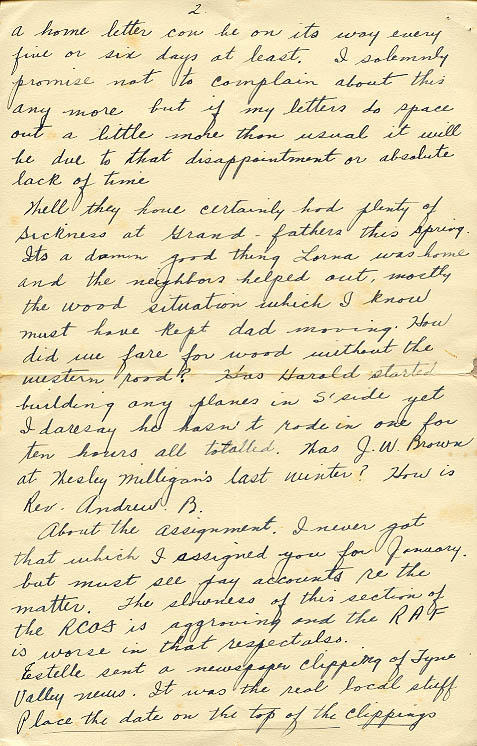 2.
a home letter can be on its way every
five or six days at least. I solemnly
promise not to complain about this
any more but if my letters do space
out a little more than usual it will
be due to that disappointment or absolute
lack of time
Well they have certainly had plenty of
sickness at Grand-fathers this spring.
Its a damn good thing Lorna was home
and the neighbors helped out, mostly
the wood situation which I know
must have kept dad moving. How
did we fare for wood without the
western road? Has Harold started
building any planes in S'side yet
I daresay he hasn't rode in one for
ten hours all totalled. Was J.W. Brown
at Wesley Milligan's last winter? How is
Rev. Andrew B.
About the assignment. I never got
that which I assigned you for January.
but must see pay accounts re the
matter. The slowness of this section of
the RCAF is aggroving and the RAF
is worse in that respect also.
Estelle sent a newspaper clipping of Tyne
Valley news. It was the real local stuff
Place the date on the top of the clippings